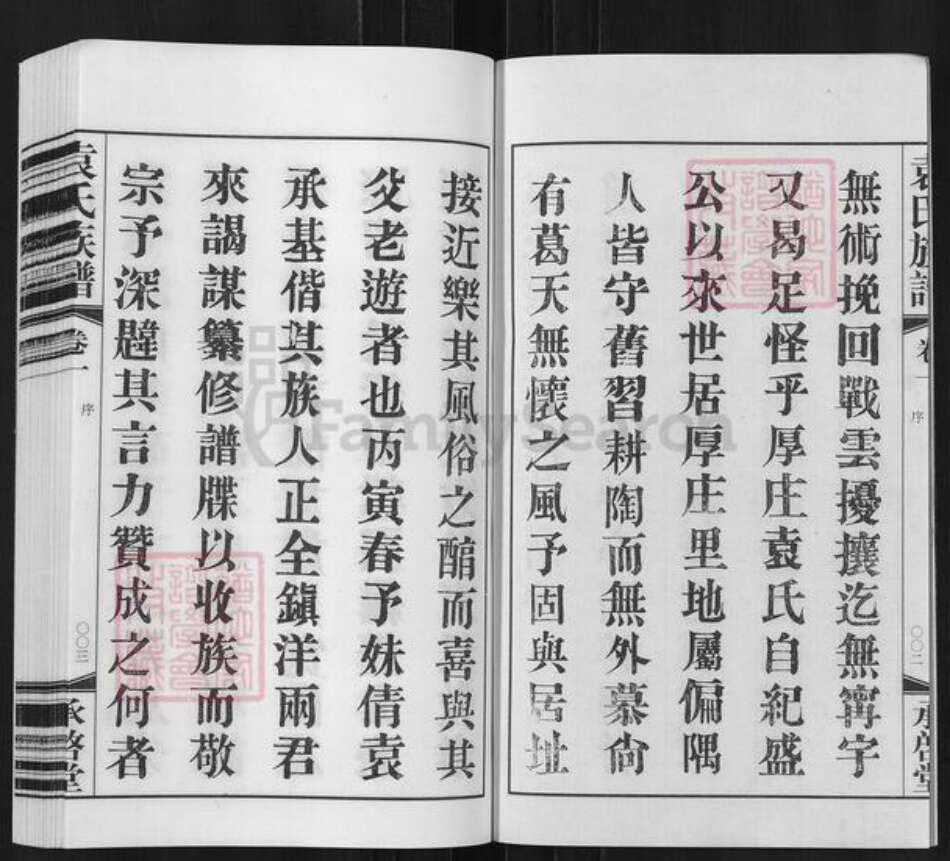 無術挽回戰雲擾攘迄無甯宇
又曷足怪乎厚庄袁氏自紀盛
公以來世居厚庄里地屬偏隅
人皆守舊習耕陶而無外慕尙
有葛天無懷之風予固與居址
袁氏族譜
卷一
序
〇〇二
承啓堂
接近樂其風俗之醕而喜與其
父老遊者也丙寅春予妹倩袁
承基偕其族人正全鎭洋兩君
來謁謀纂修譜牒以收族而敬
宗予深韙其言力贊成之何者
袁氏族譜
卷一
序
〇〇三
承啓堂
FamilySearch